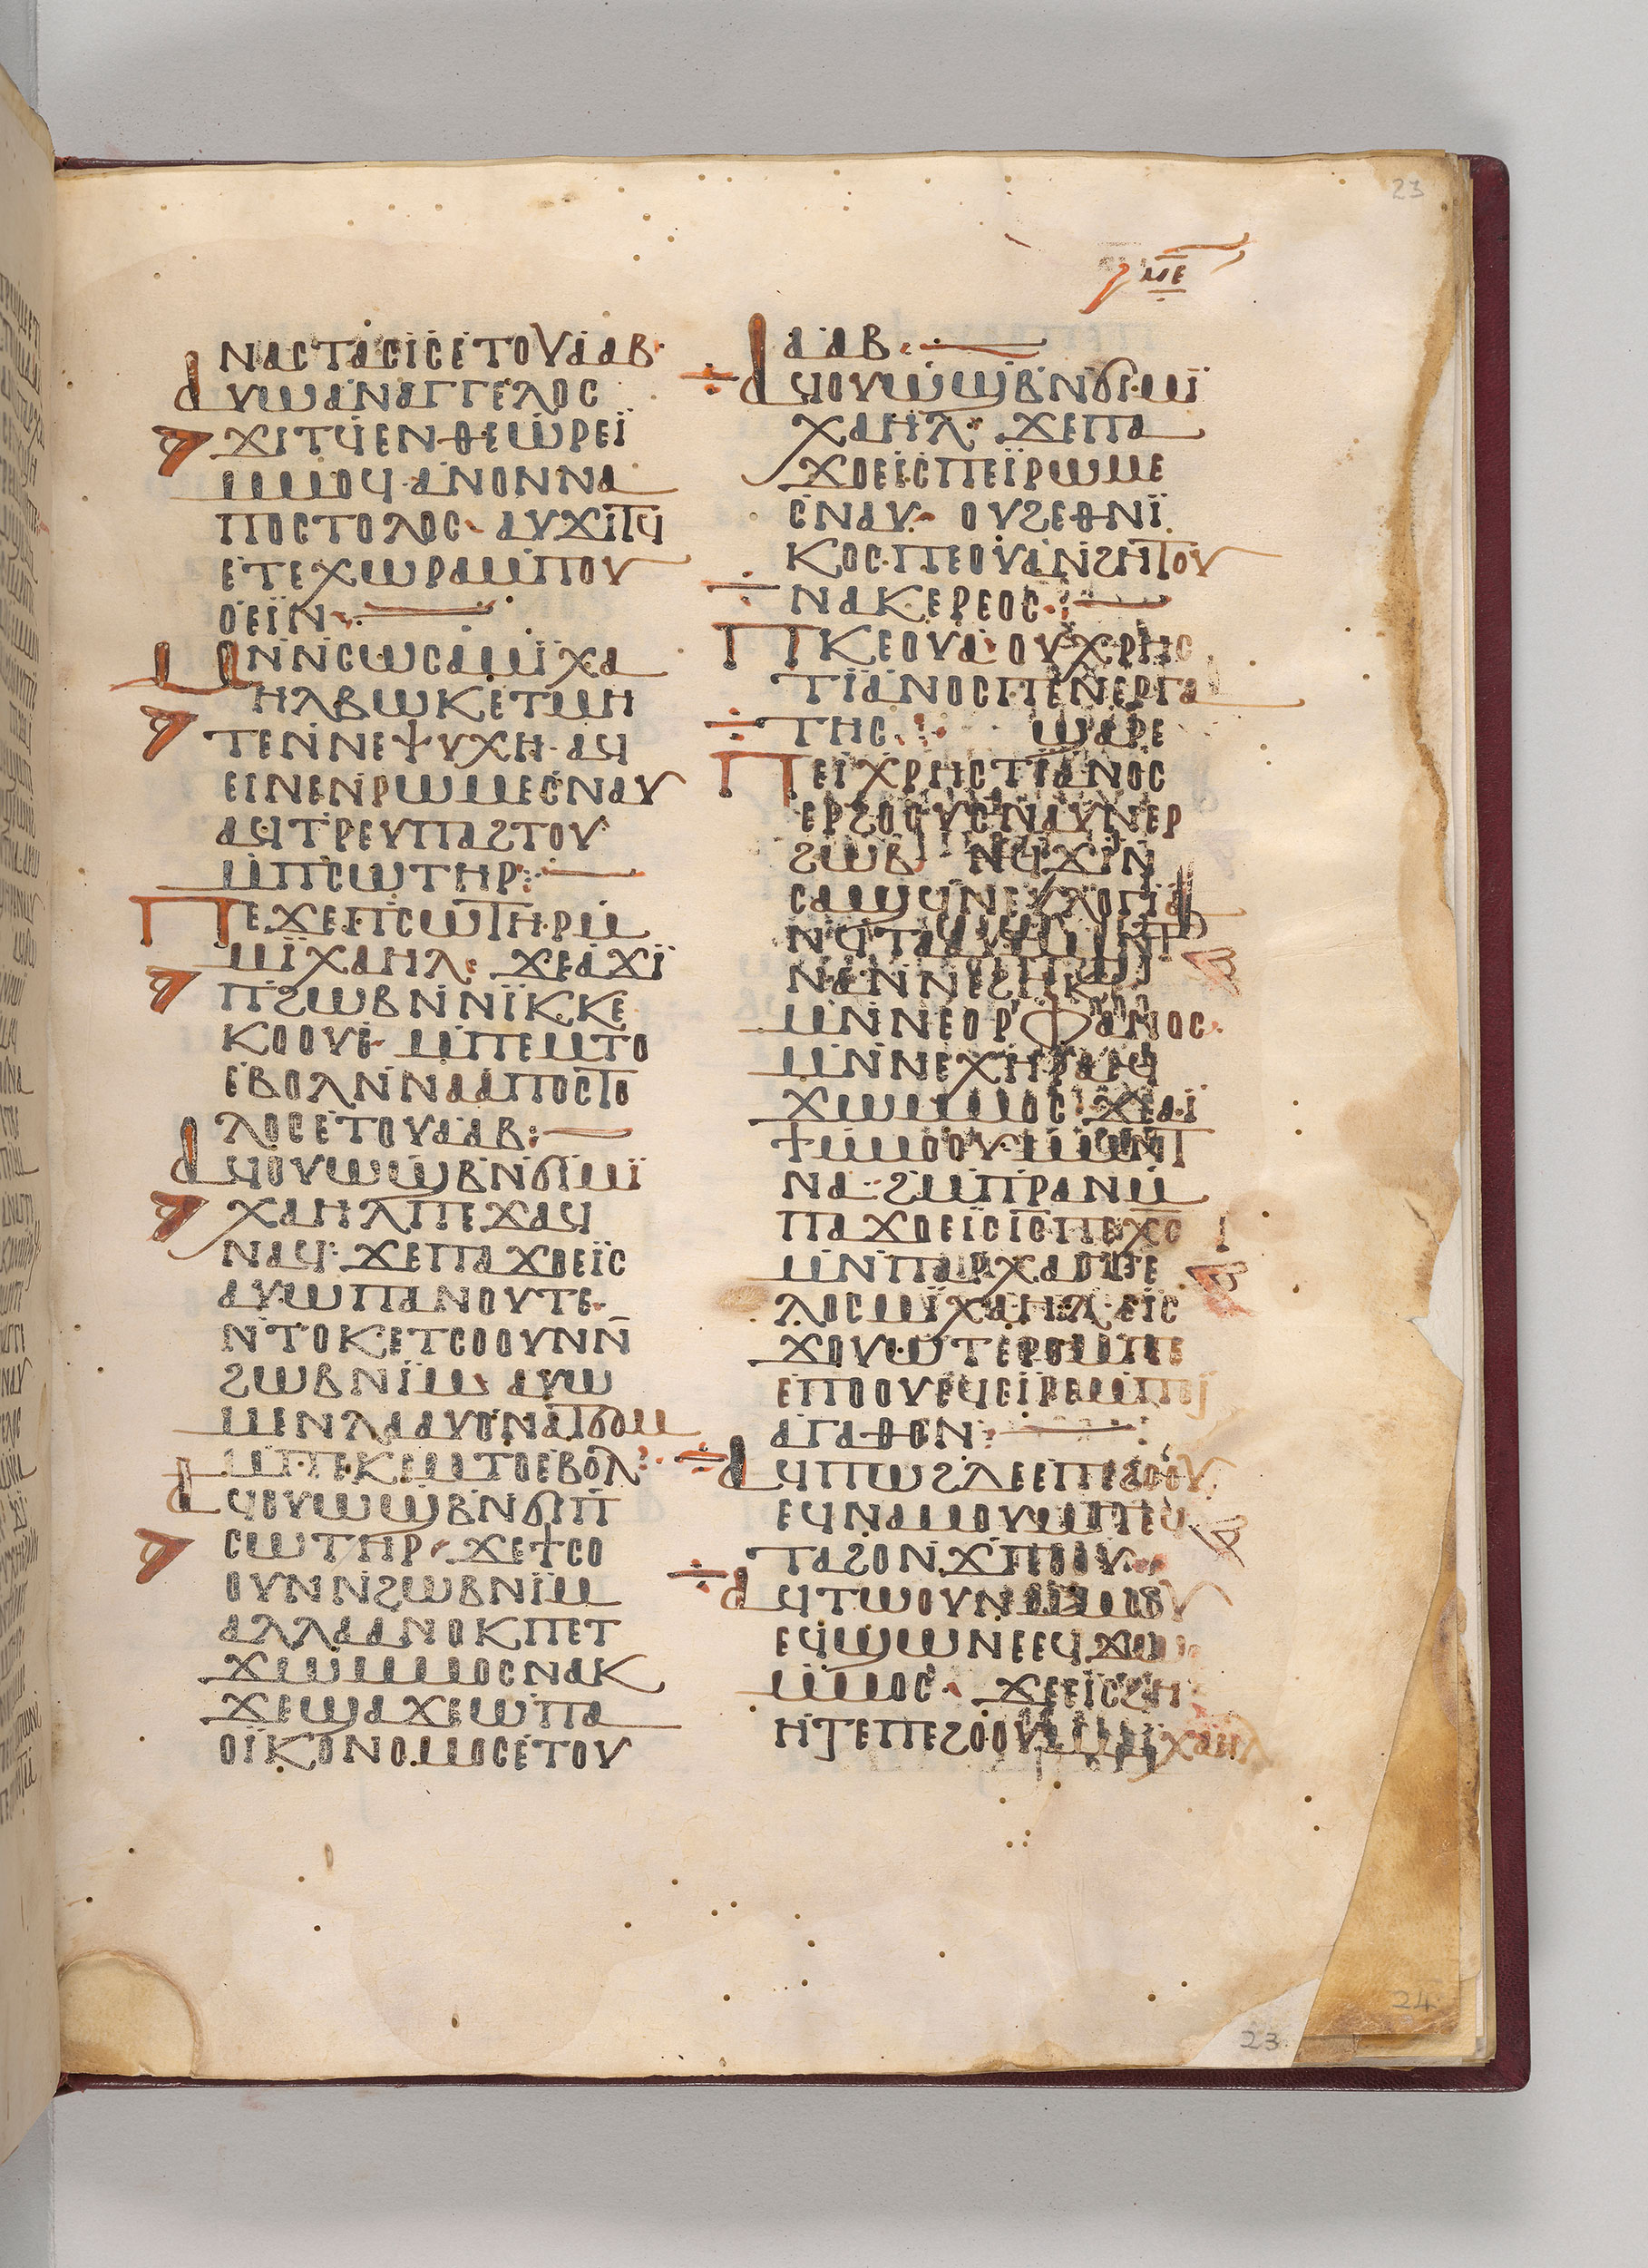 23
ⲙ̅ⲉ̅
ⲛⲁⲥⲧⲁⲥⲓⲥⲉⲧⲟⲩⲁⲁⲃ·
ⲁⲩⲱⲁⲛⲁⲅⲅⲉⲗⲟⲥ
ϫⲓⲧϥⲉⲛⲑⲉⲱⲣⲉⲓ̈
ⲙⲙⲟϥ·ⲁⲛⲟⲛⲛⲁ
ⲡⲟⲥⲧⲟⲗⲟⲥ· ⲁⲩϫⲓⲧϥ
ⲉⲧⲉⲭⲱⲣⲁⲙⲡⲟⲩ
ⲟⲉⲓ̈ⲛ·
ⲙⲛⲛⲥⲱⲥⲁⲙⲓ̈ⲭⲁ
ⲏⲗⲃⲱⲕⲉⲧⲙⲏ
ⲧⲉⲛⲛⲉⲯⲩⲭⲏ·ⲁϥ
ⲉⲓⲛⲉⲛⲣⲱⲙⲉⲥⲛⲁⲩ
ⲁϥⲧⲣⲉⲩⲡⲁϩⲧⲟⲩ
ⲙⲡⲥⲱⲧⲏⲣ:
ⲡⲉϫⲉⲡⲥⲱⲧⲏⲣⲙ
ⲙⲓ̈ⲭⲁⲏⲗ: ϫⲉⲁϫⲓ̈
ⲡϩⲱⲃⲛⲛⲓ̈ⲕⲕⲉ
ⲕⲟⲟⲩⲉ· ⲙⲡⲉⲙⲧⲟ
ⲉⲃⲟⲗⲛⲛⲁⲁⲡⲟⲥⲧⲟ
ⲗⲟⲥⲉⲧⲟⲩⲁⲁⲃ:
ⲁϥⲟⲩⲱϣⲃⲛϭⲓⲙⲓ̈
ⲭⲁⲏⲗⲡⲉϫⲁϥ
ⲛⲁϥ: ϫⲉⲡⲁϫⲟⲉⲓ̈ⲥ
ⲁⲩⲱⲡⲁⲛⲟⲩⲧⲉ·
ⲛⲧⲟⲕⲉⲧⲥⲟⲟⲩⲛⲛ̅
ϩⲱⲃⲛⲓ̈ⲙ· ⲁⲩⲱ
ⲙⲉⲛⲗⲁⲁⲩⲟⲛⲁⲧϭⲟⲙ
ⲙⲡⲉⲕⲉⲙⲧⲟⲉⲃⲟⲗ:
ⲁϥⲟⲩⲱϣⲃⲛϭⲓⲡ
ⲥⲱⲧⲏⲣ· ϫⲉϯⲥⲟ
ⲟⲩⲛⲛϩⲱⲃⲛⲓ̈ⲙ
ⲁⲗⲗⲁⲁⲛⲟⲕⲡⲉⲧ
ϫⲱⲙⲙⲟⲥⲛⲁⲕ
ϫⲉϣⲁϫⲉⲱⲡⲁ
ⲟⲓ̈ⲕⲟⲛⲟⲙⲟⲥⲉⲧⲟⲩ
ⲁⲁⲃ·
ⲁϥⲟⲩⲱϣⲃⲛϭⲓ·ⲙⲓ̈
ⲭⲁⲏⲗ· ϫⲉⲡⲁ
ϫⲟⲉⲓⲥⲡⲉⲓ̈ⲣⲱⲙⲉ
ⲥⲛⲁⲩ· ⲟⲩϩⲉⲑⲛⲓ̈
ⲕⲟⲥ·ⲡⲉⲟⲩⲁⲛϩⲏⲧⲟⲩ
ⲛⲁⲕⲉⲣⲉⲟⲥ·
ⲡⲕⲉⲟⲩⲁ·ⲟⲩⲭⲣⲏⲥ
ⲧⲓ̈ⲁⲛⲟⲥⲡⲉⲛⲉⲣⲅⲁ
ⲧⲏⲥ: ϣⲁⲣⲉ
ⲡⲉⲓ̈ⲭⲣⲏⲥⲧⲓ̈ⲁⲛⲟⲥ
ⲉⲣϩⲟⲟⲩⲥⲛⲁⲩⲛⲉⲣ
ϩⲱⲃ· ⲛϥϫⲓⲛ
ⲥⲁϣϥⲛⲉⲩⲗⲟⲅⲓⲁ
ⲛϥⲧⲁⲁⲩⲙⲙⲛⲧ
ⲛⲁⲛⲛⲉϩⲏⲕⲉ
ⲙⲛⲛⲉⲟⲣⲫⲁⲛⲟⲥ·
ⲙⲛⲛⲉⲭⲏⲣⲁⲉϥ
ϫⲱⲙⲙⲟⲥ: ϫⲉⲁⲓ
ϯⲙⲙⲟⲟⲩ·ⲙⲙⲛⲧ
ⲛⲁ·ϩⲙⲡⲣⲁⲛⲙ
ⲡⲁϫⲟⲉⲓ̈ⲥⲓ̅ⲥ̅ⲡⲉⲭ̅ⲥ̅
ⲙⲛⲡⲁⲣⲭⲁⲅⲅⲉ
ⲗⲟⲥⲙⲓ̈ⲭⲁⲏⲗ·ⲉⲓⲥ
ϫⲟⲩⲱⲧⲉⲣⲟⲙⲡⲉ
ⲉⲡⲟⲟⲩⲉϥⲉⲓⲣⲉⲙⲡⲉⲓ
ⲁⲅⲁⲑⲟⲛ:
ⲁϥⲡⲱϩⲇⲉⲉⲡⲉϩⲟⲟⲩ
ⲉϥⲛⲁⲙⲟⲩⲙⲡⲉϥ
ⲧⲁϩⲟⲛϫⲡⲟⲟⲩ
ⲁϥⲧⲱⲟⲩⲛⲙⲙⲟⲟⲩ
ⲉϥϣⲱⲛⲉⲉϥϫⲱ
ⲙⲙⲟⲥ· ϫⲉⲉⲓⲥϩⲏ
ⲏⲧⲉⲡⲉϩⲟⲟⲩⲙⲙⲓⲭⲁⲏⲗ
24
23